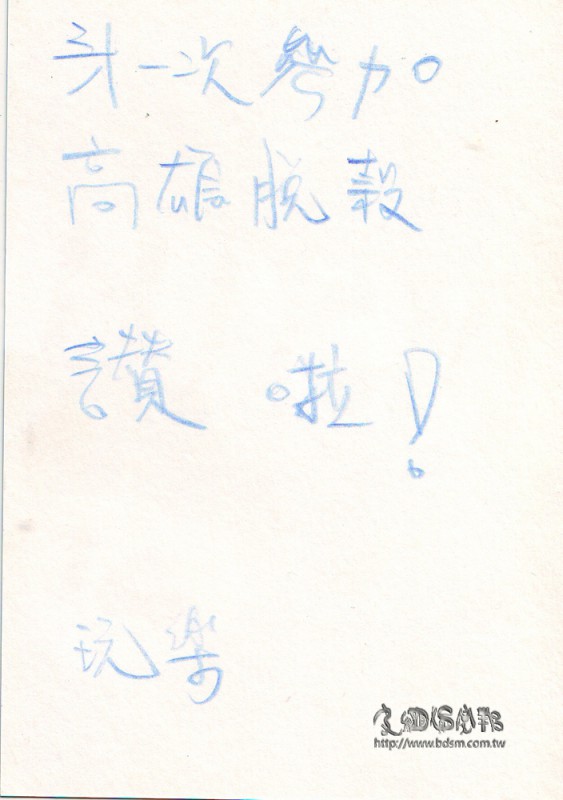 第一次參加
高雄脫殼
讚啦!
http://www.bdsm.com.tw